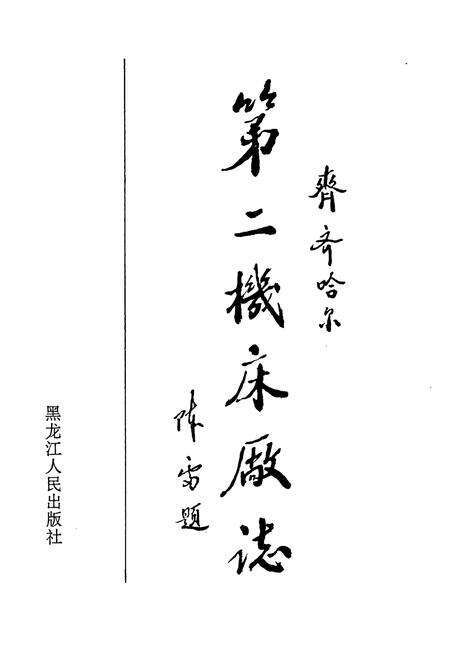 齊齐哈尔
第二機床廠誌
陈雷题
黑龙江人民出版社